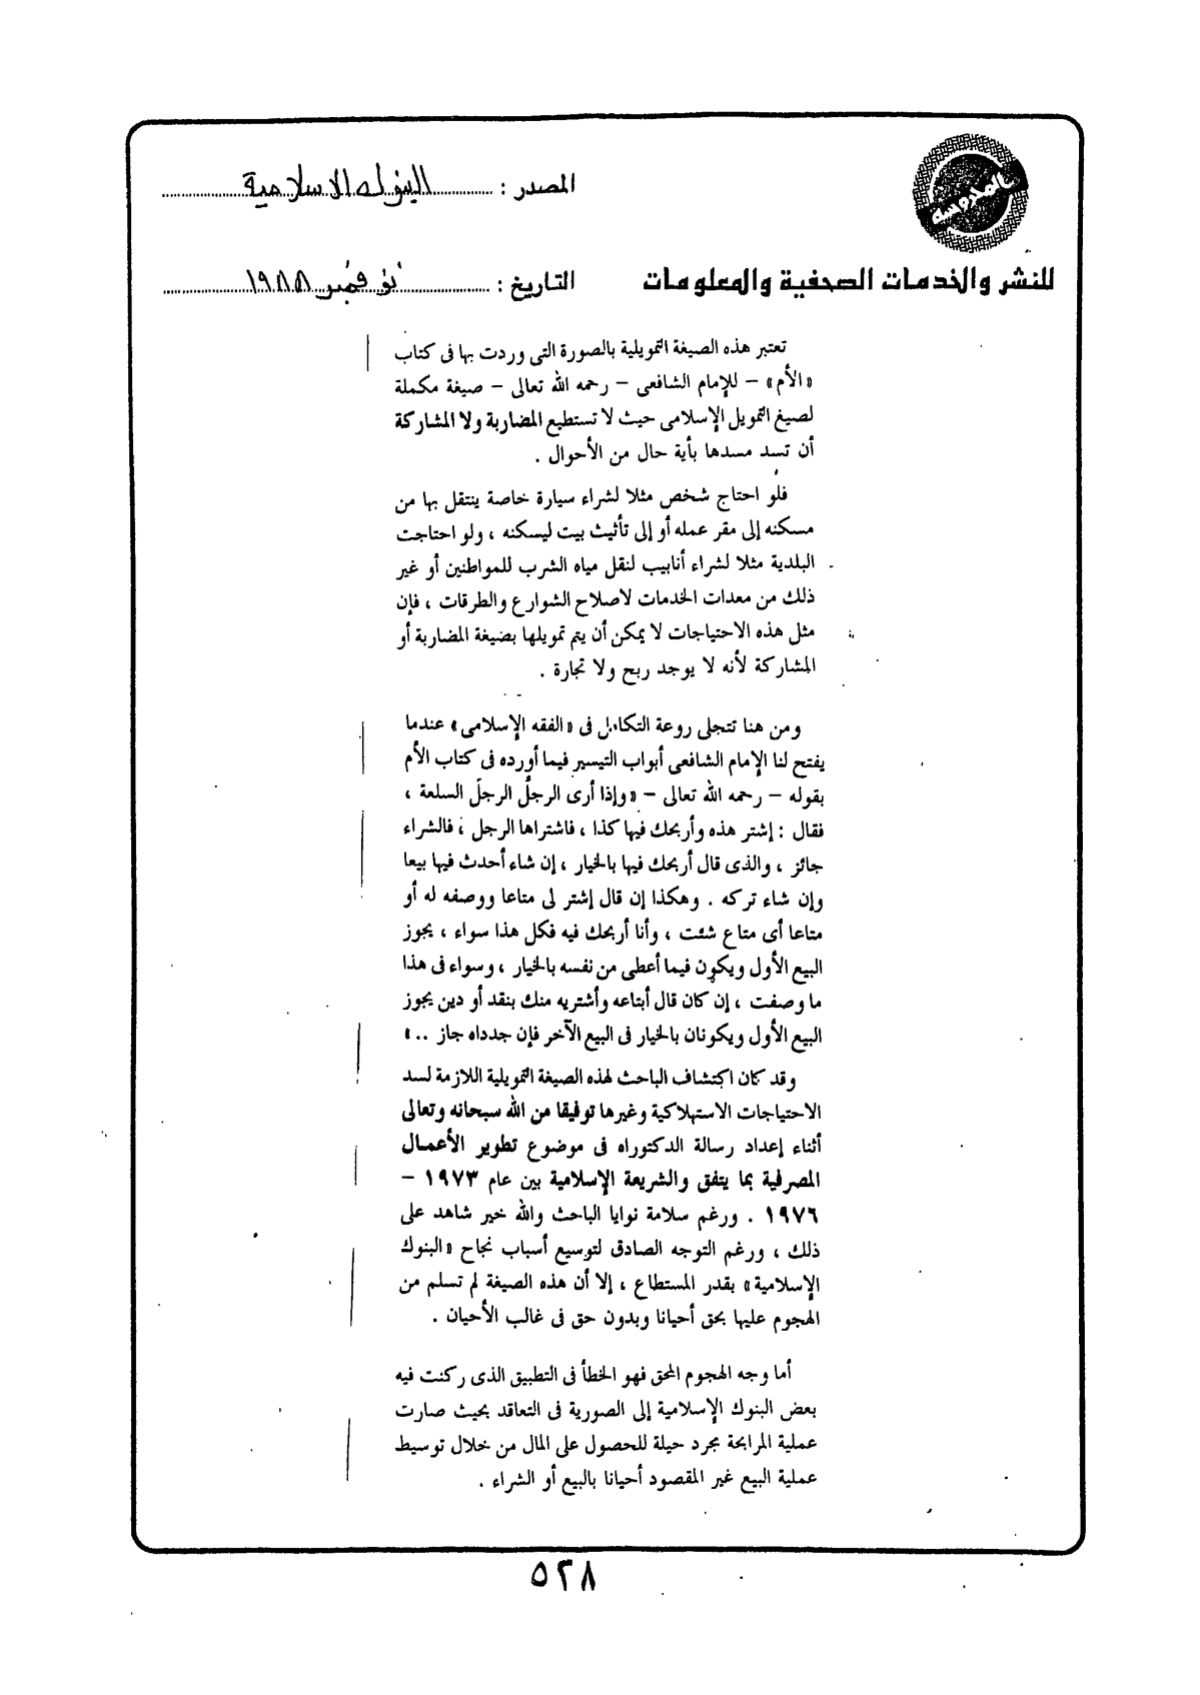 المحروسه
المصدر : البنوك الاسلامية
للنشر والخدمات الصحفية والمعلومات
التاريخ : نوفمبر ١٩٨٨
تعتبر هذه الصيغة التمويلية بالصورة التى وردت بها فى كتاب
«الأم» – للإمام الشافعى – رحمه الله تعالى – صيغة مكملة
لصيغ التمويل الإسلامى حيث لا تستطيع المضاربة ولا المشاركة
أن تسد مسدها بأية حال من الأحوال .
فلو احتاج شخص مثلا لشراء سيارة خاصة ينتقل بها من
مسكنه إلى مقر عمله أو إلى تأثيث بيت ليسكنه ، ولو احتاجت
البلدية مثلا لشراء أنابيب لنقل مياه الشرب للمواطنين أو غير
ذلك من معدات الخدمات لاصلاح الشوارع والطرقات ، فإن
مثل هذه الاحتياجات لا يمكن أن يتم تمويلها بصيغة المضاربة أو
المشاركة لأنه لا يوجد ربح ولا تجارة .
ومن هنا تتجلى روعة التكامل فى «الفقه الإسلامى» عندما
يفتح لنا الإمام الشافعى أبواب التيسير فيما أورده فى كتاب الأم
بقوله – رحمه الله تعالى – «وإذا أرى الرجلُ الرجلَ السلعة ،
فقال : إشتر هذه وأربحك فيها كذا ، فاشتراها الرجل ، فالشراء
جائز ، والذى قال أربحك فيها بالخيار ، إن شاء أحدث فيها بيعا
وإن شاء تركه . وهكذا إن قال إشتر لى متاعا ووصفه له أو
متاعا أى متاع شئت ، وأنا أربحك فيه فكل هذا سواء ، يجوز
البيع الأول ويكون فيما أعطى من نفسه بالخيار ، وسواء فى هذا
ما وصفت ، إن كان قال أبتاعه وأشتريه منك بنقد أو دين يجوز
البيع الأول ويكونان بالخيار فى البيع الآخر فإن جدداه جاز .. »
وقد كان اكتشاف الباحث لهذه الصيغة التمويلية اللازمة لسد
الاحتياجات الاستهلاكية وغيرها توفيقا من الله سبحانه وتعالى
أثناء إعداد رسالة الدكتوراه فى موضوع تطوير الأعمال
المصرفية بما يتفق والشريعة الإسلامية بين عام ١٩٧٣ –
١٩٧٦ . ورغم سلامة نوايا الباحث والله خير شاهد على
ذلك ، ورغم التوجه الصادق لتوسيع أسباب نجاح «البنوك
الإسلامية» بقدر المستطاع ، إلا أن هذه الصيغة لم تسلم من
الهجوم عليها بحق أحيانا وبدون حق فى غالب الأحيان .
أما وجه الهجوم المحق فهو الخطأ فى التطبيق الذى ركنت فيه
بعض البنوك الإسلامية إلى الصورية فى التعاقد بحيث صارت
عملية المرابحة مجرد حيلة للحصول على المال من خلال توسيط
عملية البيع غير المقصود أحيانا بالبيع أو الشراء .
٥٢٨